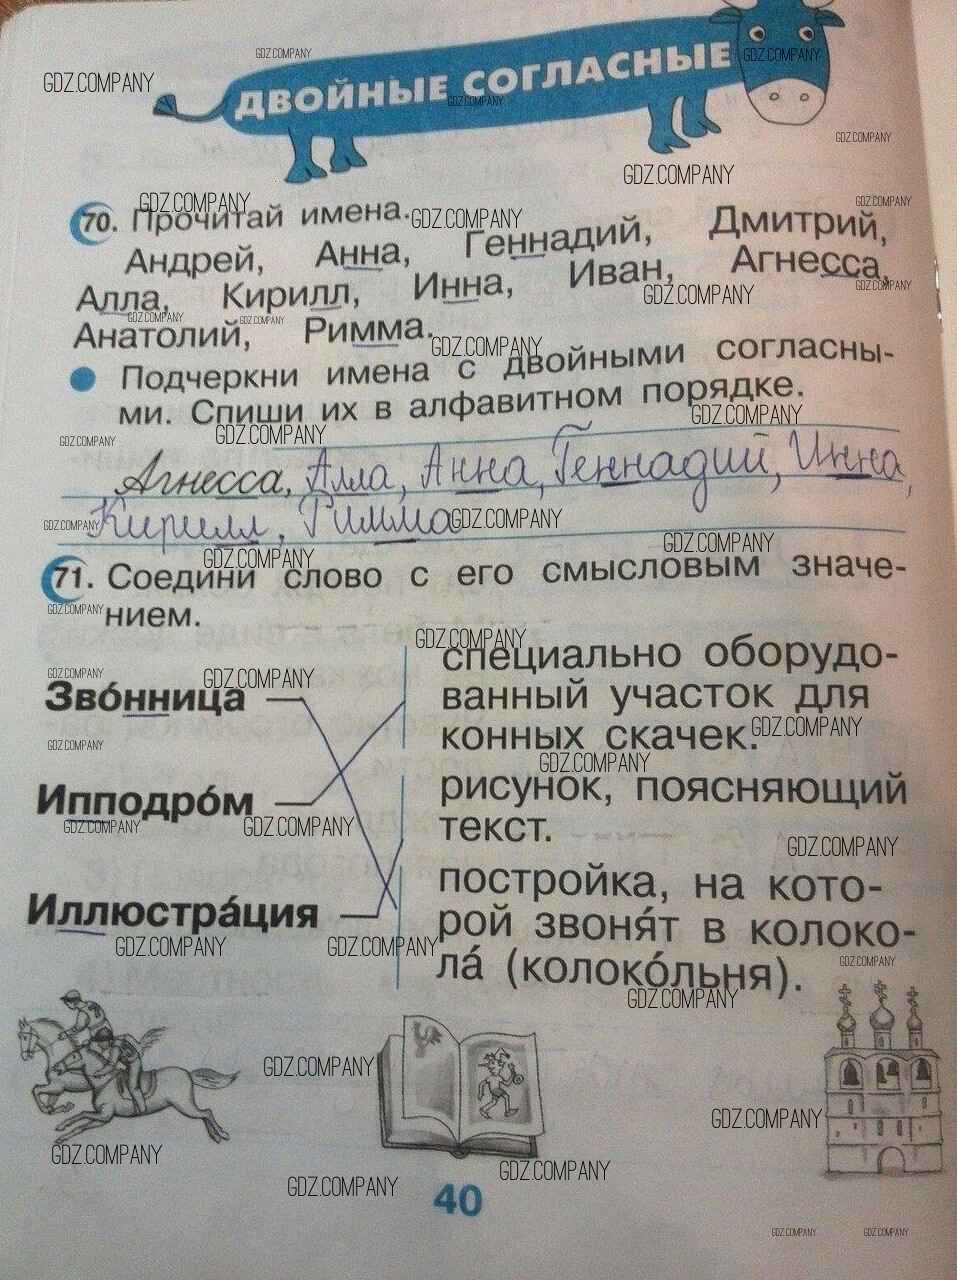 ДВОЙНЫЕ СОГЛАСНЫЕ
70. Прочитай имена.
Андрей, Анна, Геннадий, Дмитрий,
Алла, Кирилл, Инна, Иван, Агнесса,
Анатолий, Римма.
Подчеркни имена с двойными согласны-
ми. Спиши их в алфавитном порядке.
Агнесса, Алла, Анна, Геннадий, Инна,
Кирилл, Римма
71. Соедини слово с его смысловым значе-
нием.
Зво́нница
Ипподро́м
Иллюстра́ция
специально оборудо-
ванный участок для
конных скачек.
рисунок, поясняющий
текст.
постройка, на кото-
рой звоня́т в колоко-
ла́ (колоко́льня).
40
GDZ.COMPANY